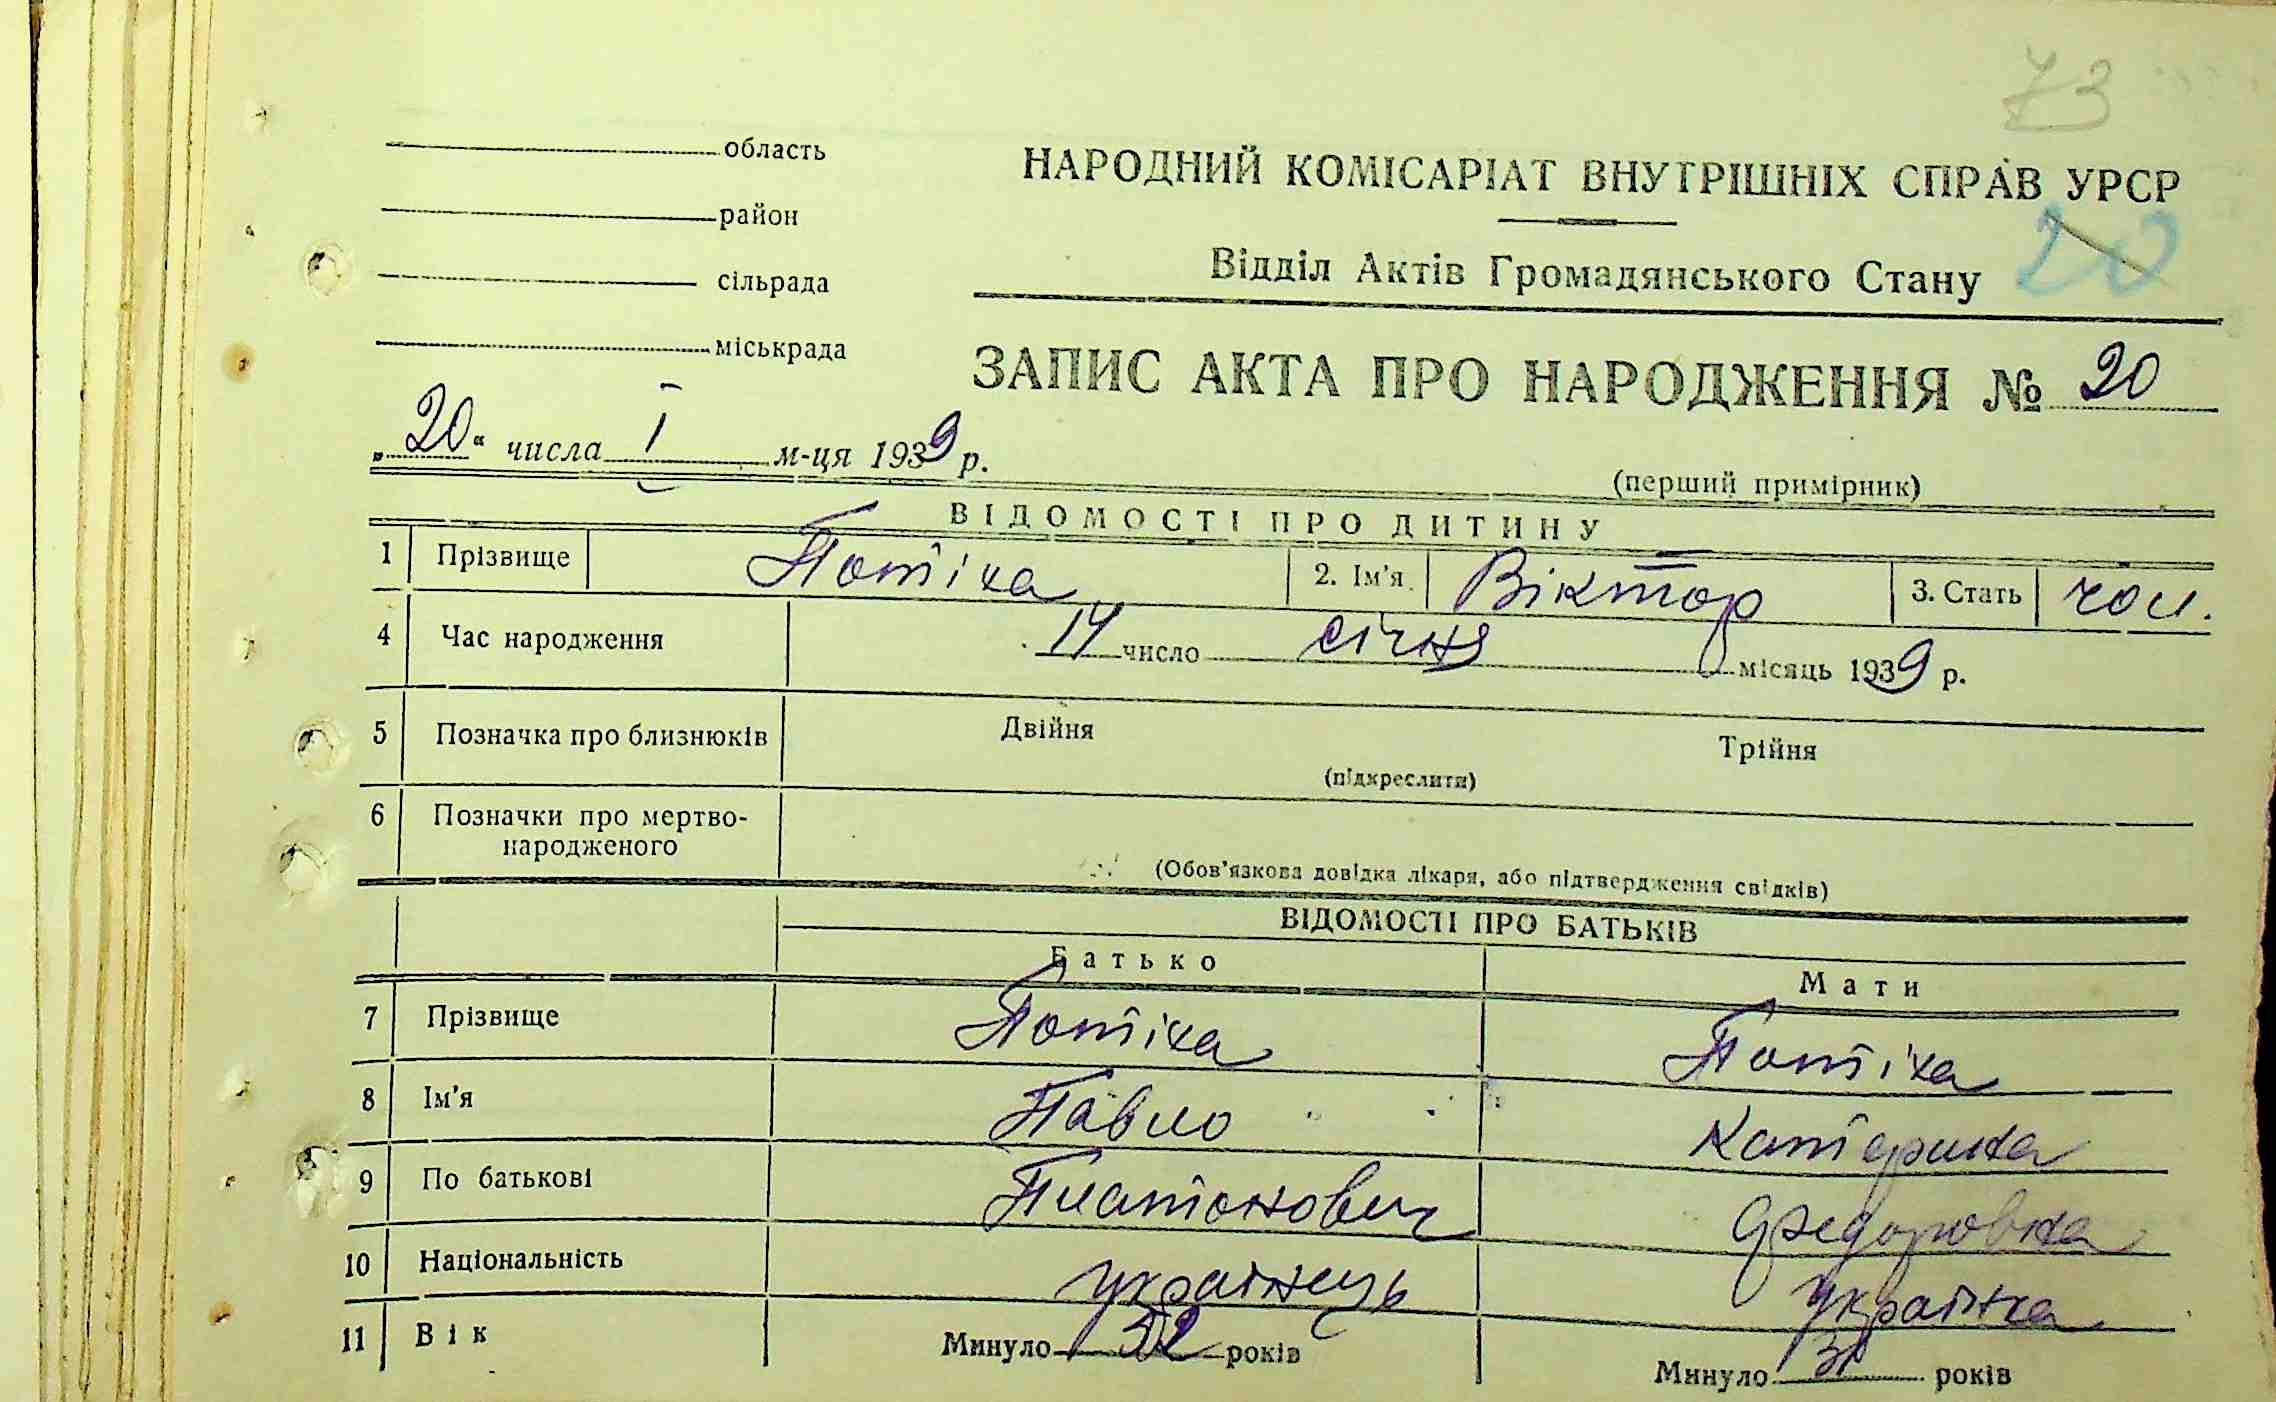 73
область
район
сільрада
міськрада
НАРОДНИЙ КОМІСАРІАТ ВНУТРІШНІХ СПРАВ УРСР
Відділ Актів Громадянського Стану 20
ЗАПИС АКТА ПРО НАРОДЖЕННЯ № 20
„20“ числа I м-ця 1939 р.
(перший примірник)
ВІДОМОСТІ ПРО ДИТИНУ
1 Прізвище Потіха 2. Ім'я Віктор 3. Стать чол.
4 Час народження 14 число січня місяць 1939 р.
5 Позначка про близнюків Двійня Трійня
(підкреслити)
6 Позначки про мертво-
народженого
(Обов'язкова довідка лікаря, або підтвердження свідків)
ВІДОМОСТІ ПРО БАТЬКІВ
Батько Мати
7 Прізвище Потіха Потіха
8 Ім'я Павло Катерина
9 По батькові Платонович Федоровна
10 Національність українець українка
11 Вік Минуло 32 років Минуло років